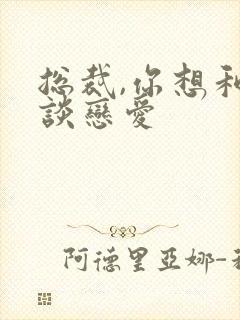 总裁,你想和
談戀愛
阿德里亞娜-